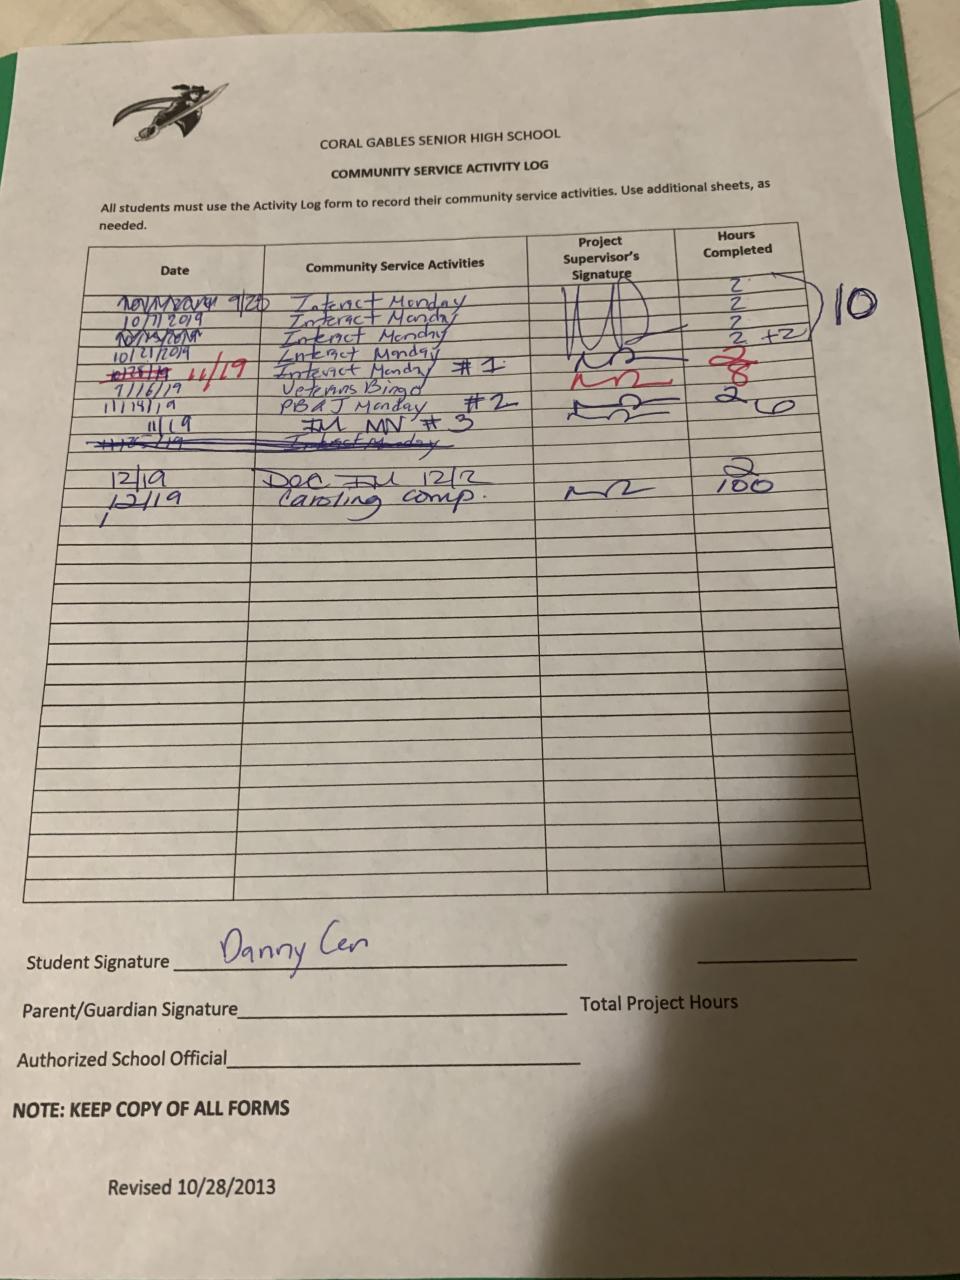 CORAL GABLES SENIOR HIGH SCHOOL
COMMUNITY SERVICE ACTIVITY LOG
All students must use the Activity Log form to record their community service activities. Use additional sheets, as
needed.
Date Community Service Activities Project Supervisor's Signature Hours Completed
9/20 Interact Monday 2
10/7/2019 Interact Monday 2
Interact Monday 2
10/21/2019 Interact Monday 2 +2 10
11/19 Interact Monday #1 2
Veterans Bingo 8
11/14/19 PB&J Monday #2 2
11/19 MN #3 6
Interact Monday
12/19 Dec 12/2 2
12/19 Caroling comp. 100
Student Signature Danny Cen
Parent/Guardian Signature Total Project Hours
Authorized School Official
NOTE: KEEP COPY OF ALL FORMS
Revised 10/28/2013